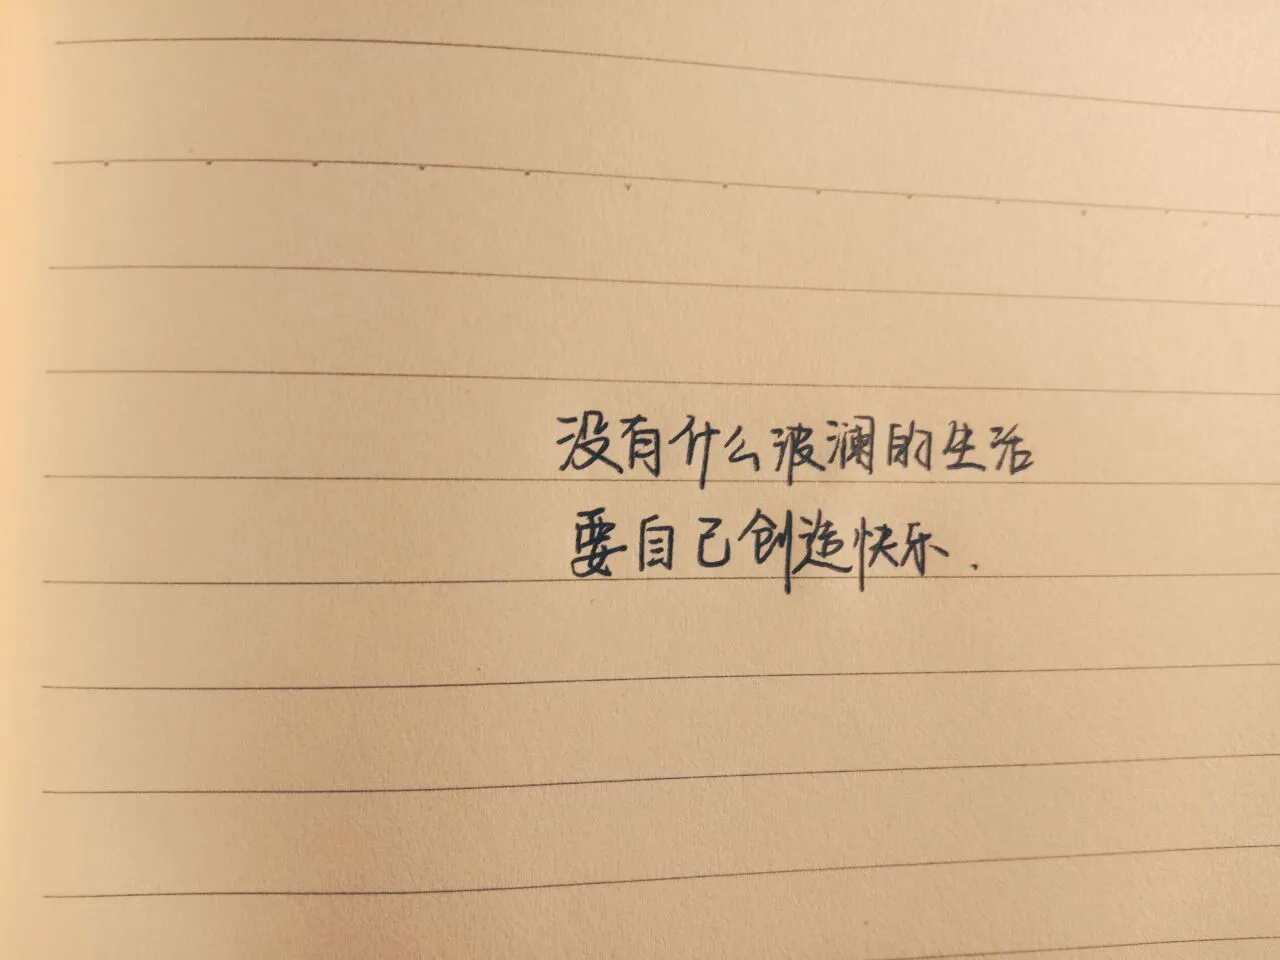 没有什么波澜的生活
要自己创造快乐.